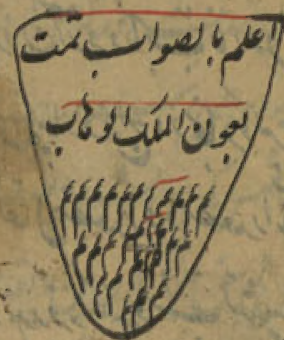 اعلم بالصواب تمت
بعون الملک الوهاب
م م م م م م م م م م
م م م م م م م م
م م م م م م
م م م